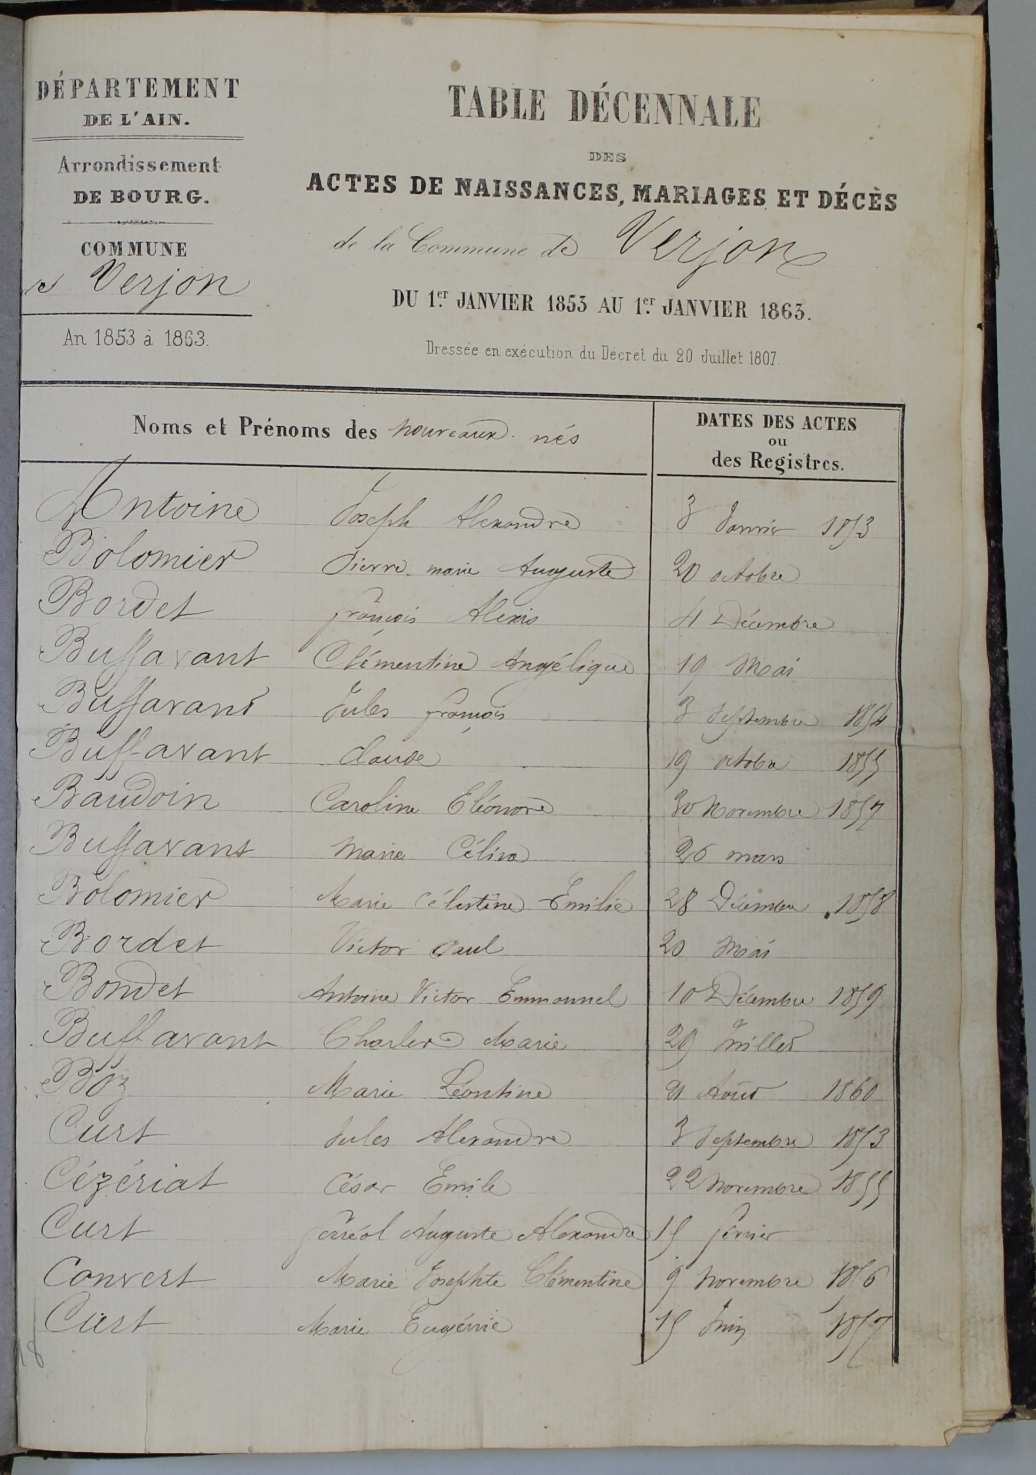 DÉPARTEMENT
DE L'AIN.
Arrondissement
DE BOURG.
COMMUNE
de Verjon
An 1853 à 1863.
TABLE DÉCENNALE
DES
ACTES DE NAISSANCES, MARIAGES ET DÉCÈS
de la Commune de Verjon
DU 1er JANVIER 1853 AU 1er JANVIER 1863.
Dressée en exécution du Décret du 20 Juillet 1807.
Noms et Prénoms des nouveaux-nés
DATES DES ACTES
ou
des Registres.
Antoine Joseph Alexandre 3 Janvier 1853
Bolomier Pierre marie Auguste 20 octobre
Bordet françois Alexis 4 Décembre
Buffavant Clémentine Angélique 19 Mai
Buffavant Jules françois 3 Septembre 1854
Buffavant Claude 19 octobre 1855
Baudoin Caroline Eléonore 30 Novembre 1857
Buffavant Marie Célina 26 mars
Bolomier Marie Célestine Emilie 28 Décembre 1858
Bordet Victor Paul 20 Mai
Bondet Antoine Victor Emmanuel 10 Décembre 1859
Buffavant Charles Marie 29 Juillet
Böz Marie Léontine 21 Août 1860
Curt Jules Alexandre 3 Septembre 1853
Cézériat César Emile 22 Novembre 1855
Curt ferréol Auguste Alexandre 15 février
Convert Marie Josephte Clémentine 9 Novembre 1856
Curt Marie Eugénie 15 Juin 1857